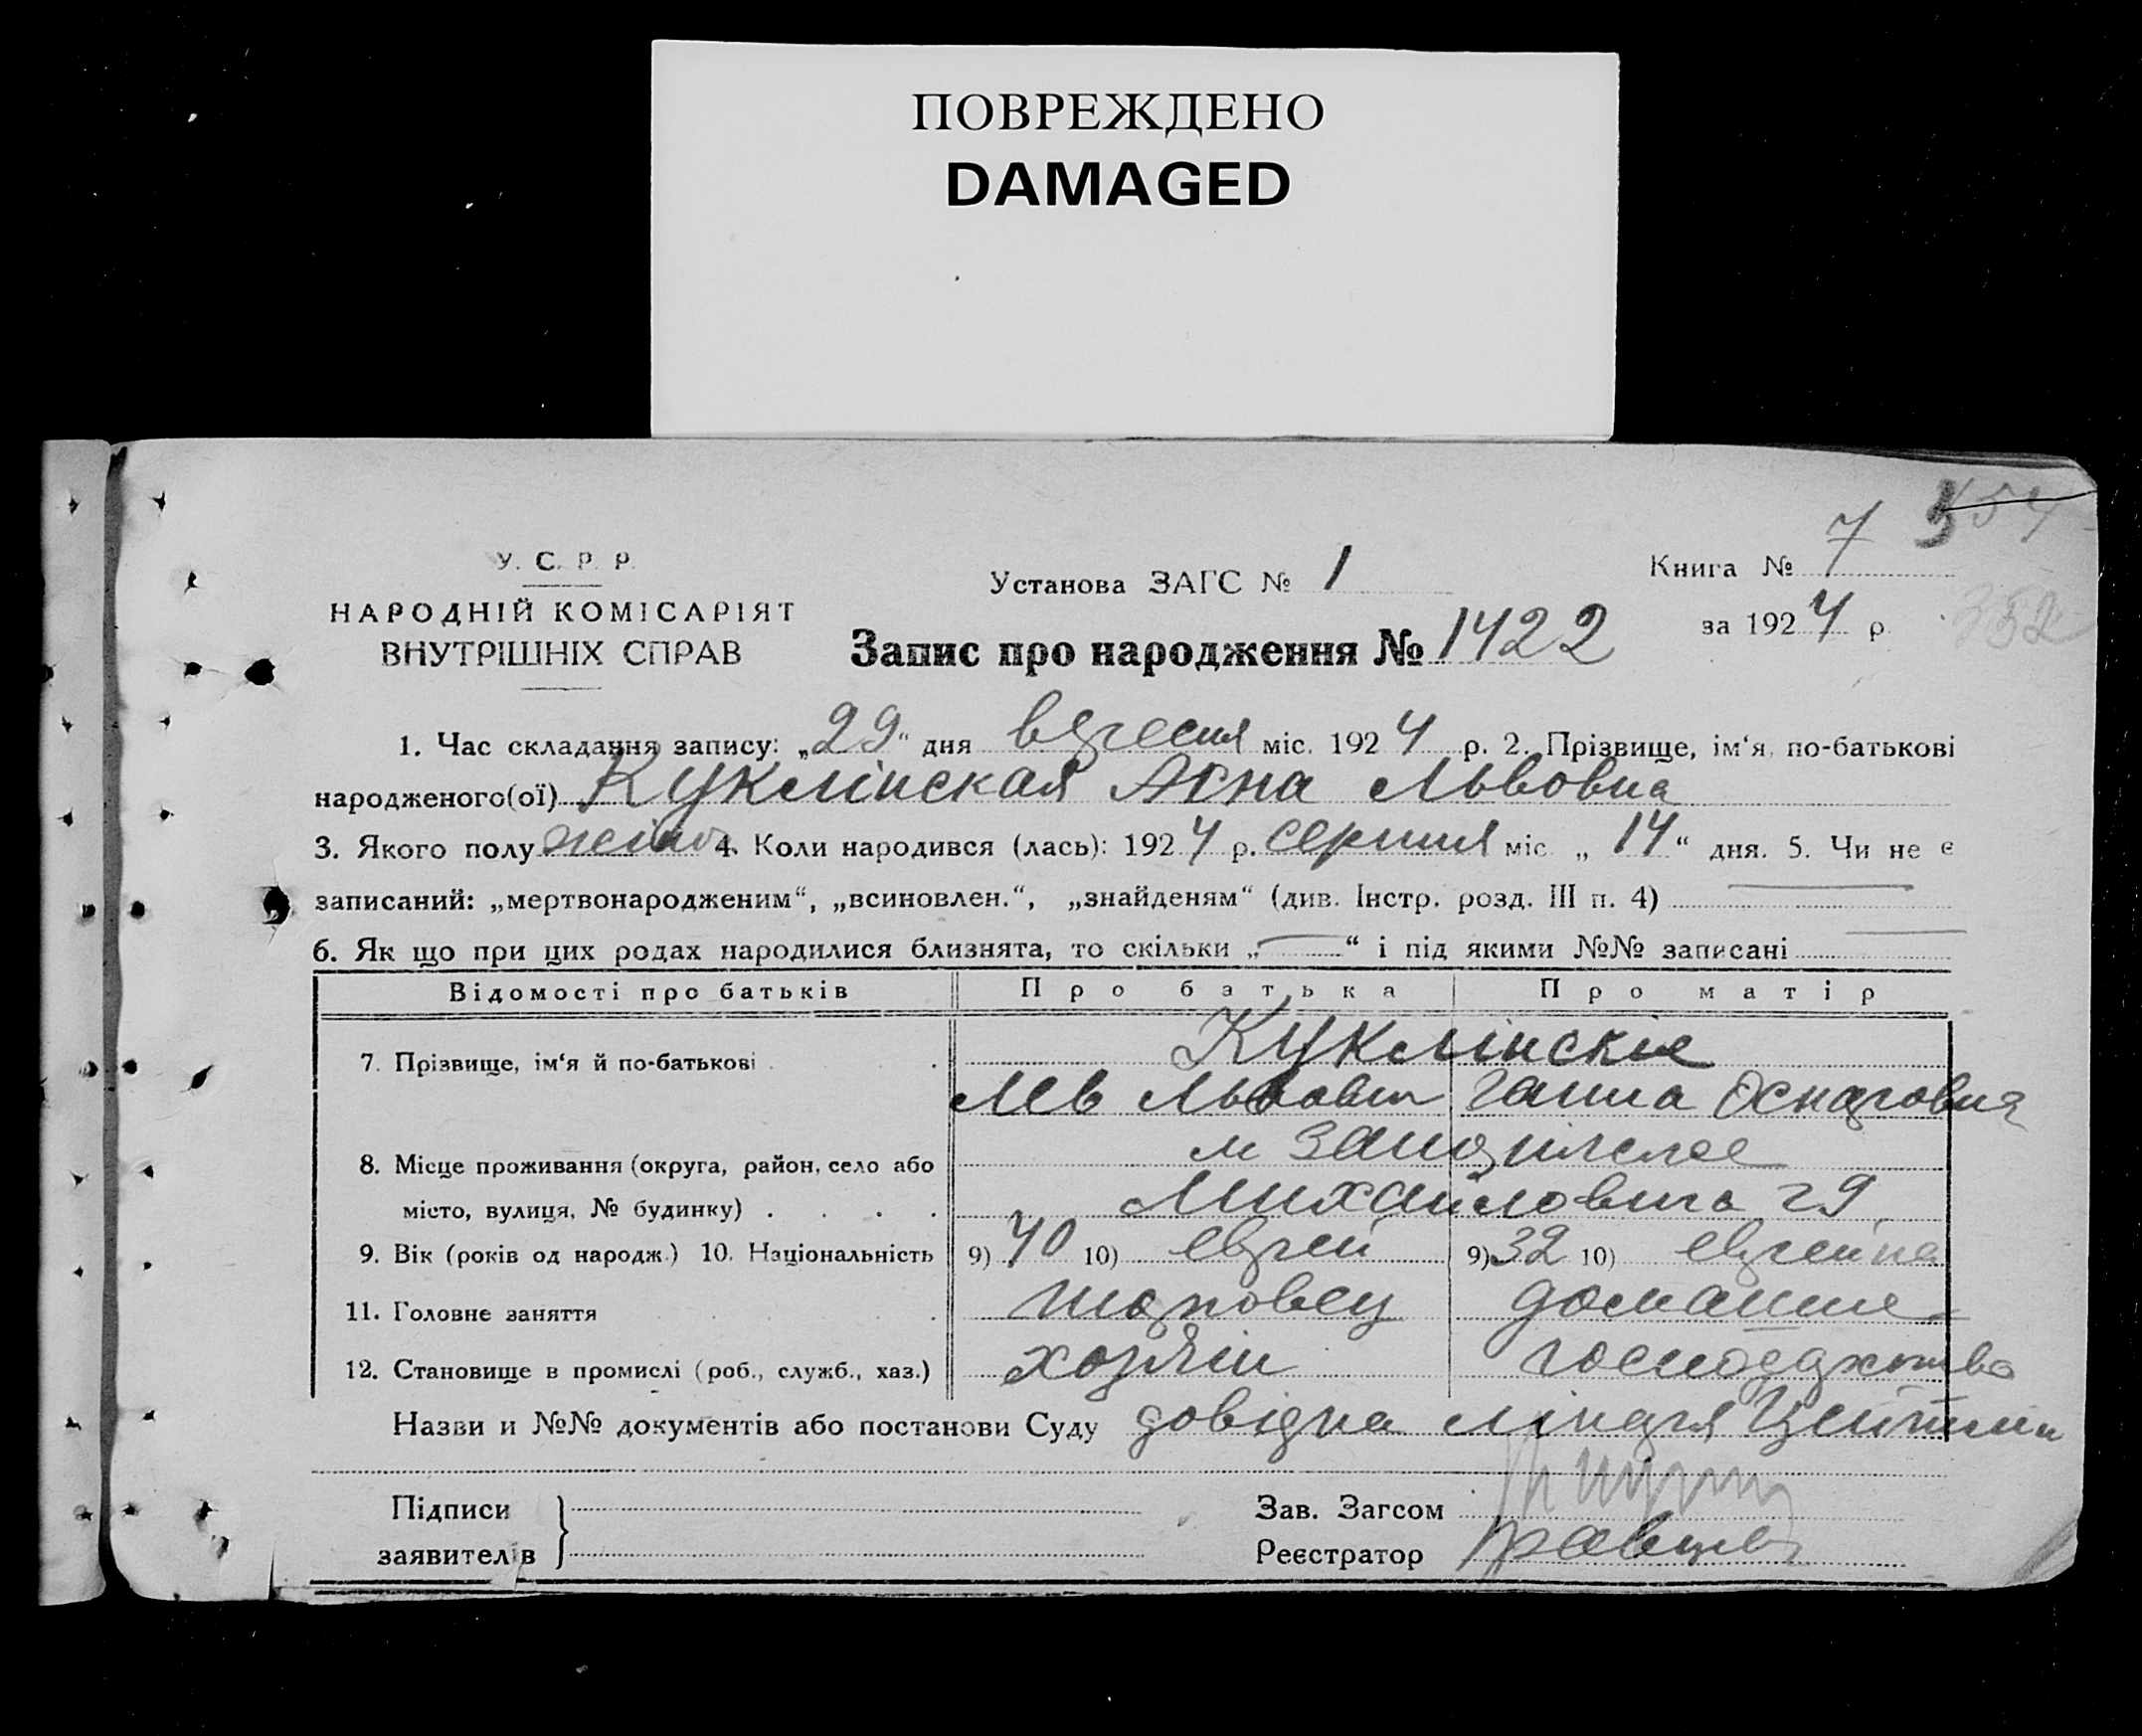 ПОВРЕЖДЕНО
DAMAGED
У. С. Р. Р.
НАРОДНІЙ КОМІСАРІЯТ
ВНУТРІШНІХ СПРАВ
Установа ЗАГС № 1
Книга № 7
за 1924 р.
354
352
Запис про народження № 1422
1. Час складання запису: „29“ дня вересня міс. 1924 р. 2. Прізвище, ім‘я, по-батькові
народженого(ої) Куклінская Асна Львовна
3. Якого полу жіноч. 4. Коли народився (лась): 1924 р. серпня міс. „14“ дня. 5. Чи не є
записаний: „мертвонародженим“, „всиновлен.“, „знайденям“ (див. Інстр. розд. III п. 4)
6. Як що при цих родах народилися близнята, то скільки „—“ і під якими №№ записані
Відомості про батьків Про батька Про матір
7. Прізвище, ім‘я й по-батькові Куклінскіе
Лев Львович Ганна
8. Місце проживання (округа, район, село або м
місто, вулиця, № будинку) Михайловича 29
9. Вік (років од народж.) 10. Національність 9) 40 10) еврей 9) 32 10) еврейка
11. Головне заняття торговец домашне
12. Становище в промислі (роб., служб., хаз.) хозяін господарство
Назви и №№ документів або постанови Суду довідка лікаря
Підписи
заявителів
Зав. Загсом
Реєстратор